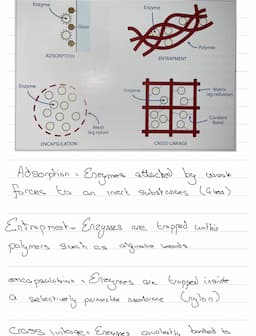 Enzyme
Glass
ADSORPTION
Enzyme
Polymer
ENTRAPMENT
Enzyme
Mesh
(eg nylon)
ENCAPSULATION
Enzyme
Matrix
(eg cellulose)
Covalent
Bond
CROSS LINKAGE
Adsorption = Enzymes attached by weak
forces to an inert substances (Glass)
Entrapment = Enzymes are trapped within
polymers such as alginate beads.
encapsulation = Enzymes are trapped inside
a selectively permeable membrane (nylon)
Cross linkage = Enzymes covalently bonded to